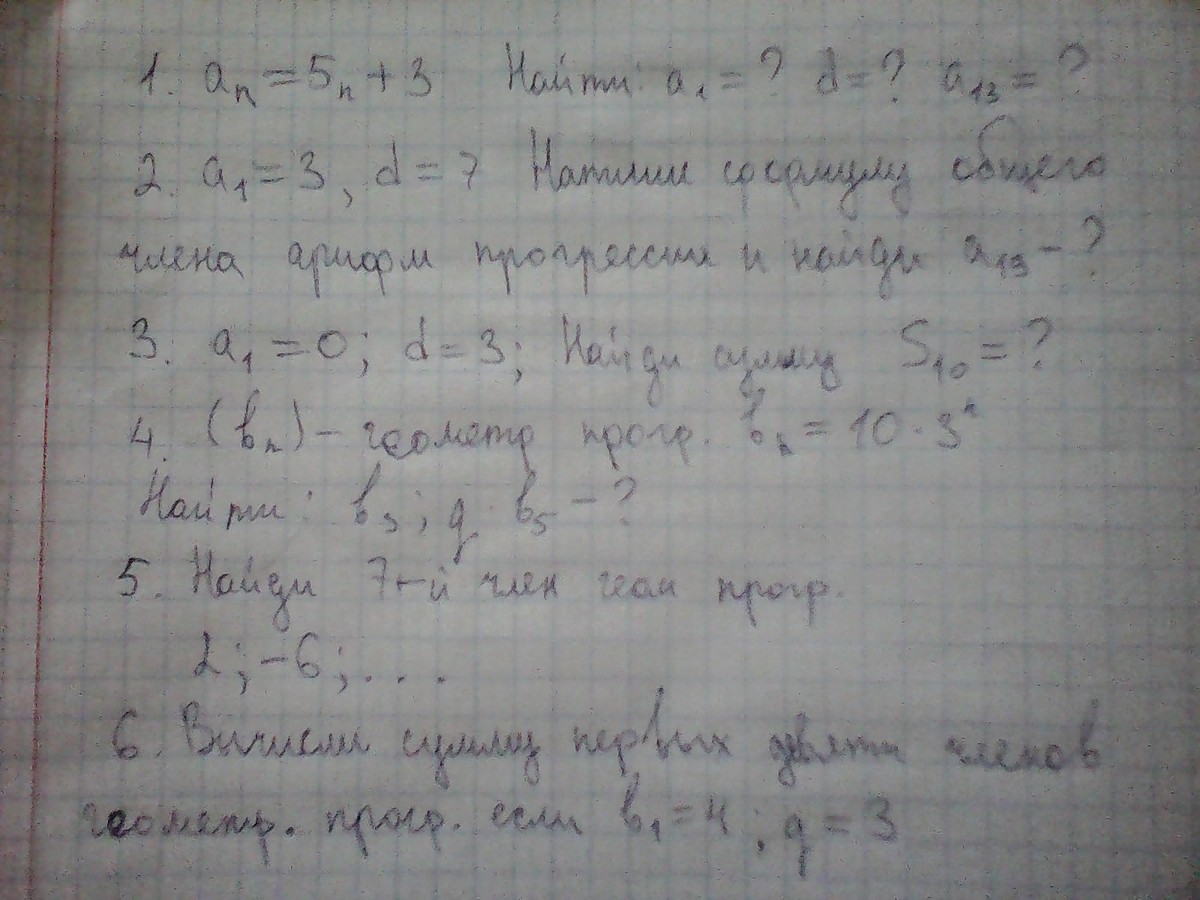 1. aₙ = 5ₙ + 3 Найти: a₁ = ? d = ? a₁₃ = ?
2. a₁ = 3, d = 7 Напиши формулу общего
члена арифм прогрессии и найди a₁₃ - ?
3. a₁ = 0; d = 3; Найди сумму S₁₀ = ?
4. (bₙ) - геометр прогр. bₙ = 10 · 3ⁿ
Найти: b₃; q b₅ - ?
5. Найди 7-й член геом прогр.
2; -6; . . .
6. Вычисли сумму первых девяти членов
геометр. прогр. если b₁ = 4; q = 3